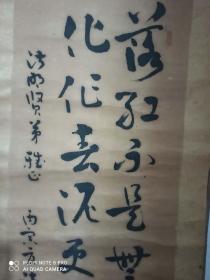 落红不是無
化作春泥更
明贤弟雅正
丙寅
REDMI NOTE 9 PRO
AI QUAD CAMERA